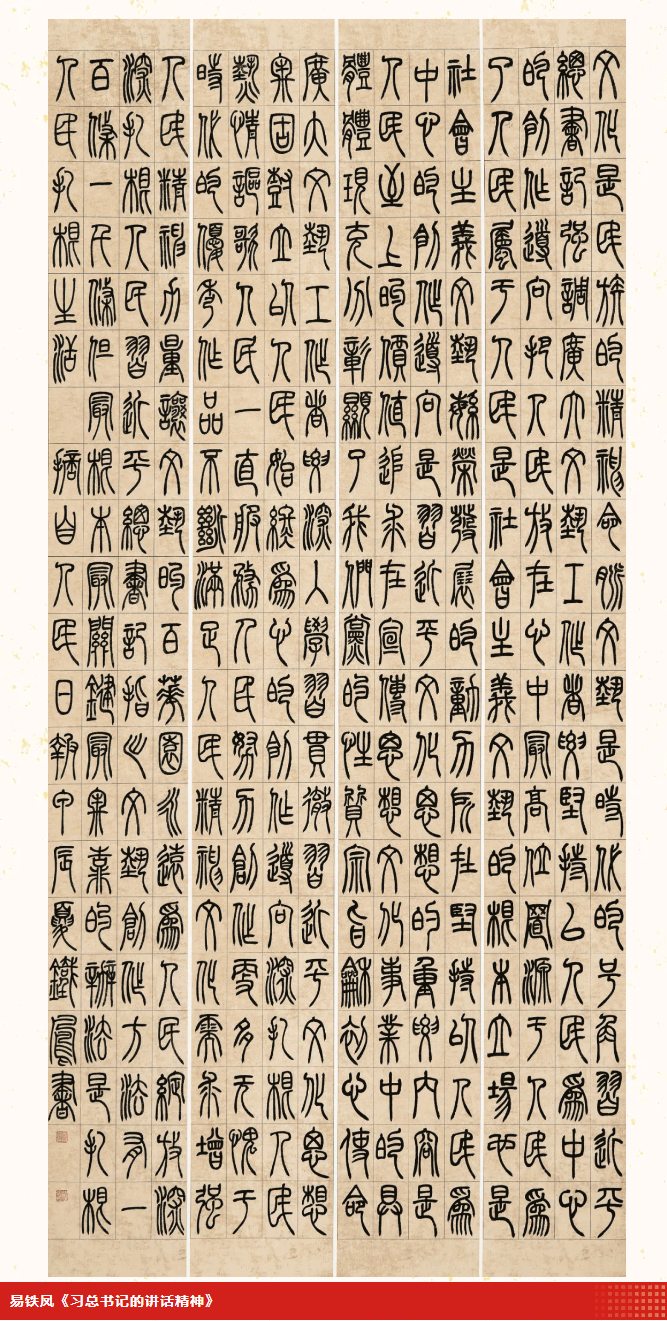 文化是民族的精神命脈文藝是時代的号角習近平
總書記强調廣大文藝工作者要堅持以人民爲中心
的創作導向把人民放在心中最高位置源于人民爲
了人民屬于人民是社會主義文藝的根本立場也是
社會主義文藝繁榮發展的動力所在堅持以人民爲
中心的創作導向是習近平文化思想的重要内容是
人民至上的價值追求在宣傳思想文化事業中的具
體體現充分彰顯了我們黨的性質宗旨龢初心使命
廣大文藝工作者要深入學習貫徹習近平文化思想
牢固樹立以人民始終爲心的創作導向深扎根人民
熱情謳歌人民一直服務人民努力創作更多无愧于
時代的優秀作品不斷滿足人民精神文化需求增强
人民精神力量讓文藝的百花園永遠爲人民綻放深
深扎根人民習近平總書記指出文藝創作方法有一
百條一千條但最根本最關鍵最牢靠的辦法是扎根
人民扎根生活 摘自人民日報甲辰夏鐵鳳書
易铁凤《习总书记的讲话精神》